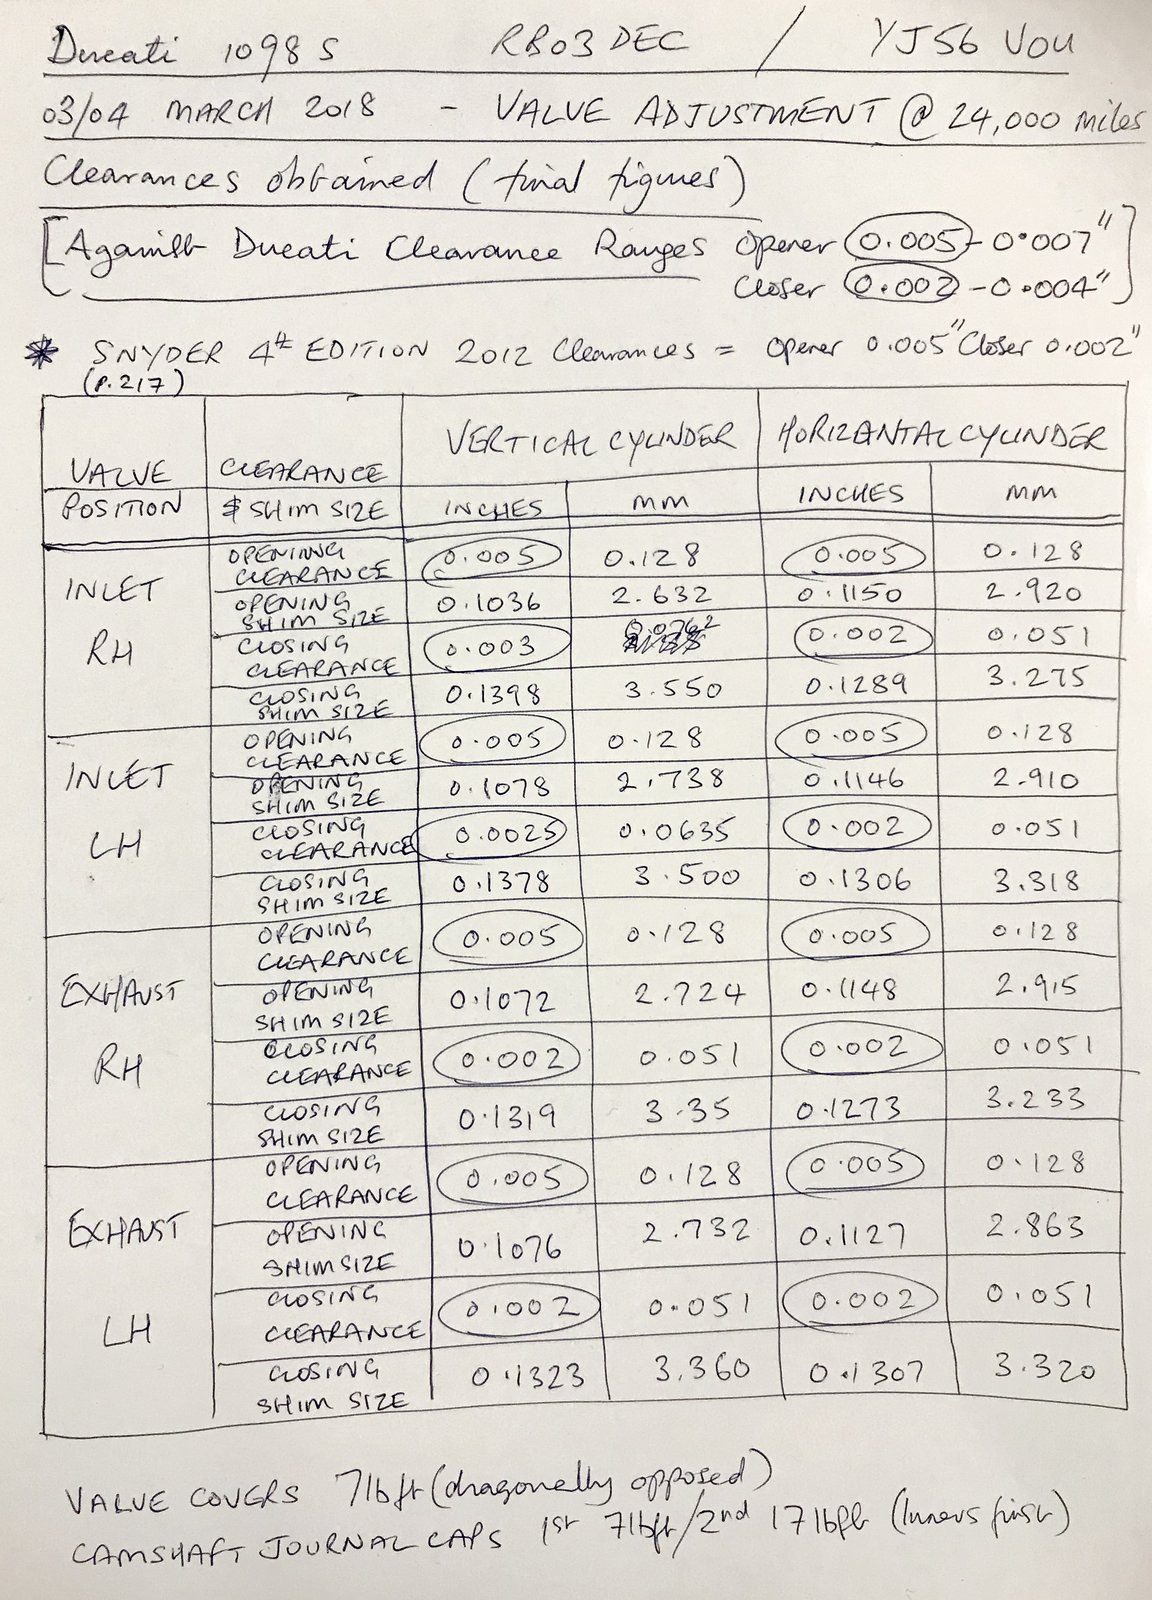 Ducati 1098 S RB03 DEC / YJ56 VOU
03/04 MARCH 2018 - VALVE ADJUSTMENT @ 24,000 miles
Clearances obtained (final figures)
[Against Ducati Clearance Ranges Opener 0.005 - 0.007"
Closer 0.002 - 0.004"]
* SNYDER 4th EDITION 2012 Clearances = Opener 0.005" Closer 0.002"
(P.217)
VALVE CLEARANCE VERTICAL CYLINDER HORIZANTAL CYLINDER
POSITION & SHIM SIZE INCHES mm INCHES mm
INLET RH
OPENING CLEARANCE 0.005 0.128 0.005 0.128
OPENING SHIM SIZE 0.1036 2.632 0.1150 2.920
CLOSING CLEARANCE 0.003 0.0762 0.002 0.051
CLOSING SHIM SIZE 0.1398 3.550 0.1289 3.275
INLET LH
OPENING CLEARANCE 0.005 0.128 0.005 0.128
OPENING SHIM SIZE 0.1078 2.738 0.1146 2.910
CLOSING CLEARANCE 0.0025 0.0635 0.002 0.051
CLOSING SHIM SIZE 0.1378 3.500 0.1306 3.318
EXHAUST RH
OPENING CLEARANCE 0.005 0.128 0.005 0.128
OPENING SHIM SIZE 0.1072 2.724 0.1148 2.915
CLOSING CLEARANCE 0.002 0.051 0.002 0.051
CLOSING SHIM SIZE 0.1319 3.35 0.1273 3.233
EXHAUST LH
OPENING CLEARANCE 0.005 0.128 0.005 0.128
OPENING SHIM SIZE 0.1076 2.732 0.1127 2.863
CLOSING CLEARANCE 0.002 0.051 0.002 0.051
CLOSING SHIM SIZE 0.1323 3.360 0.1307 3.320
VALVE COVERS 7lbft (diagonally opposed)
CAMSHAFT JOURNAL CAPS 1st 7lbft/2nd 17lbft (Inners first)